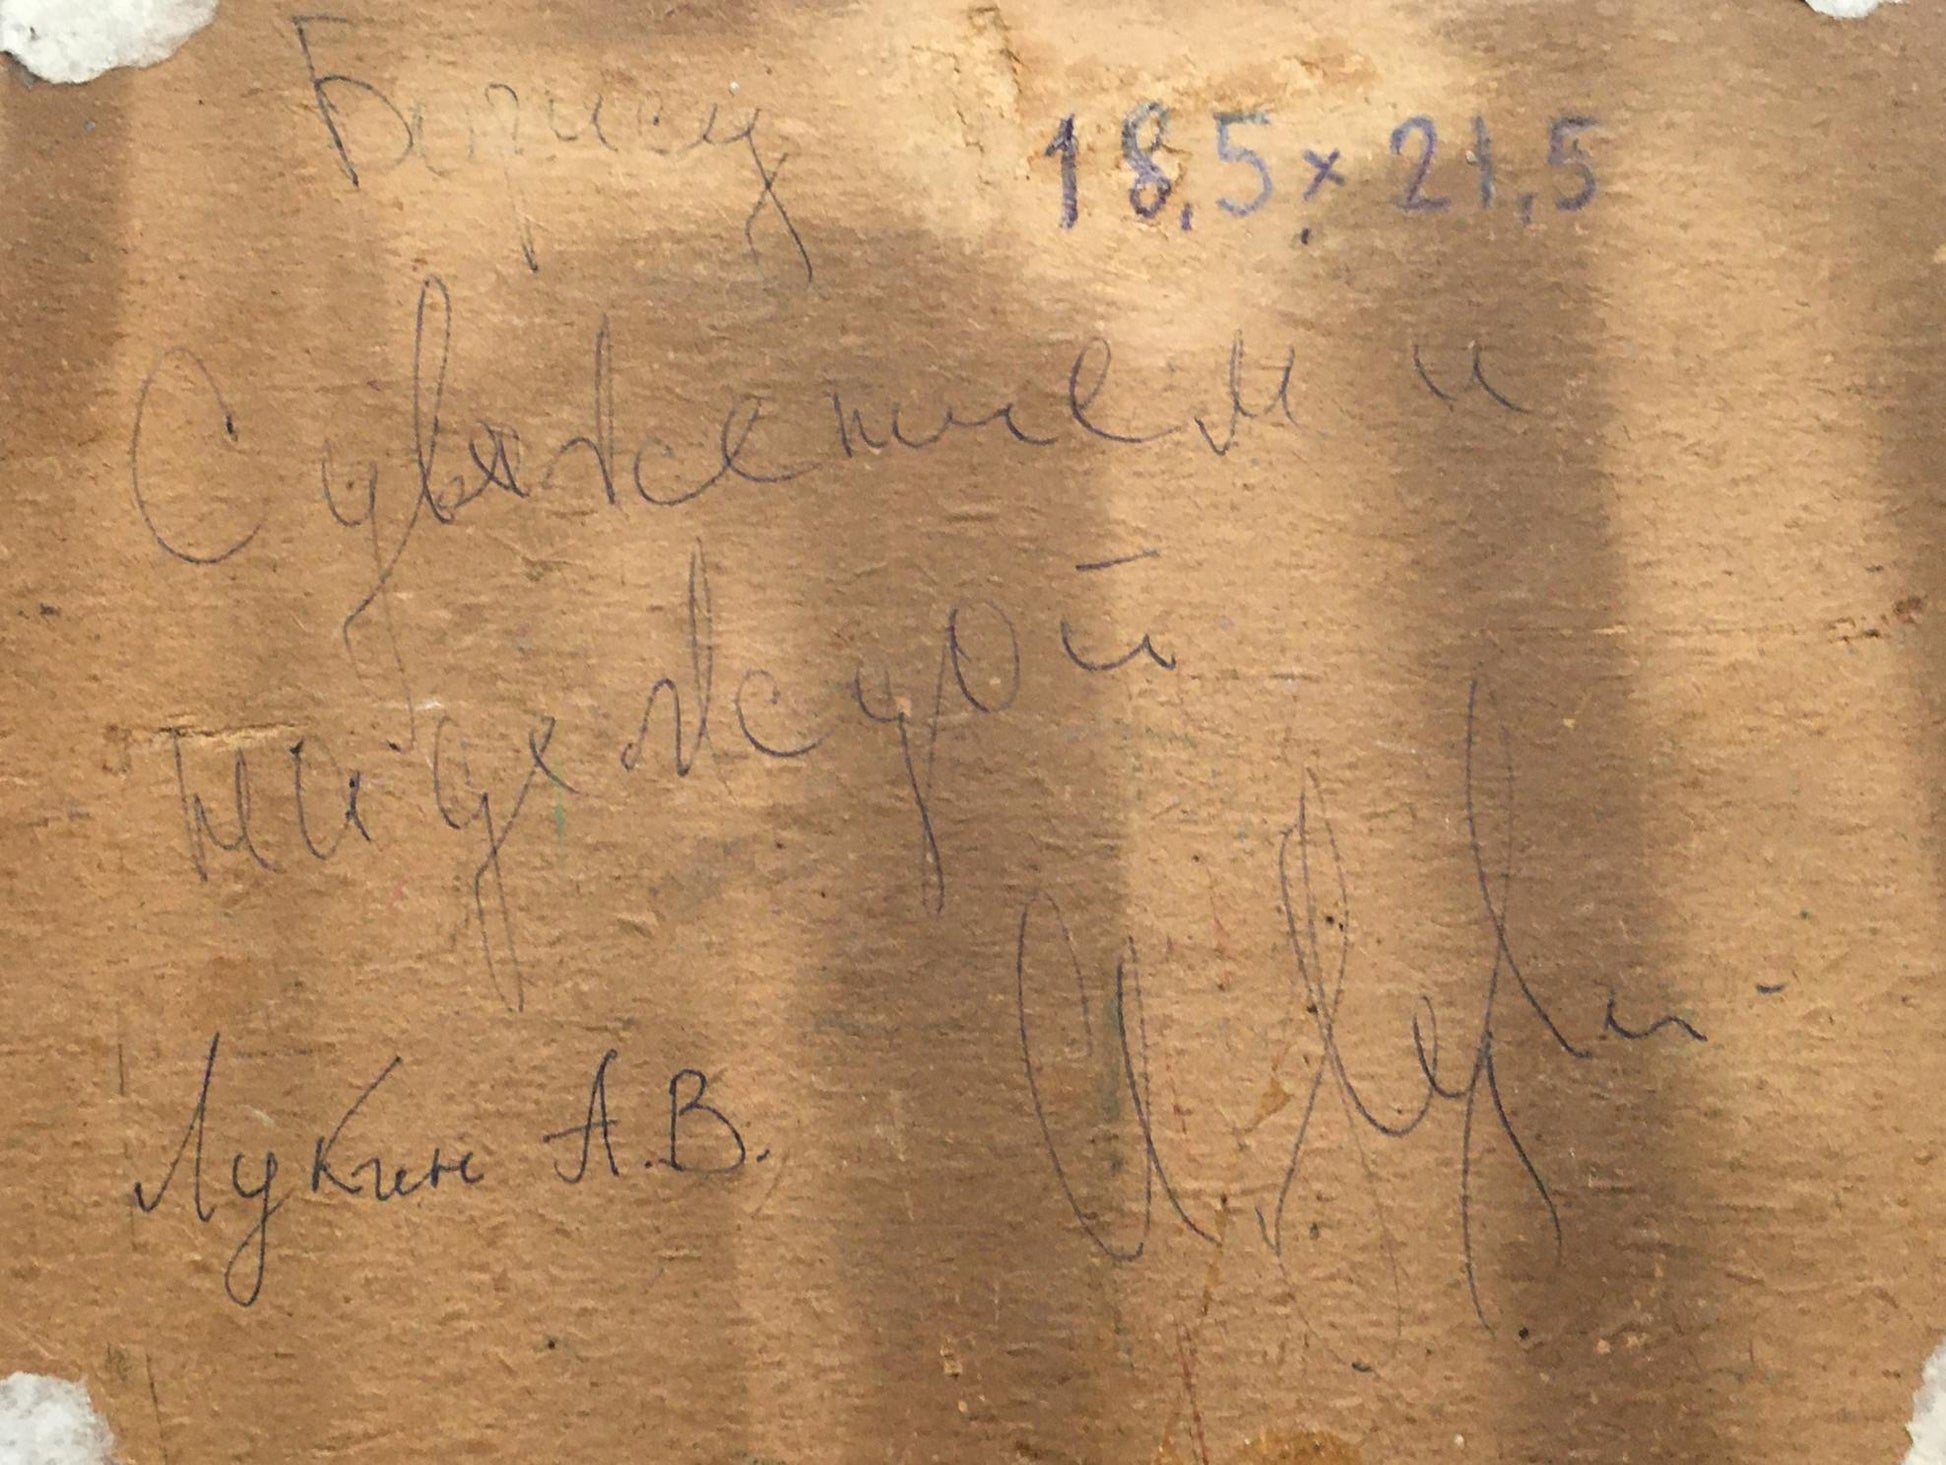 Борису
18,5 × 21,5
С уважением и
надеждой
Лукин А.В.